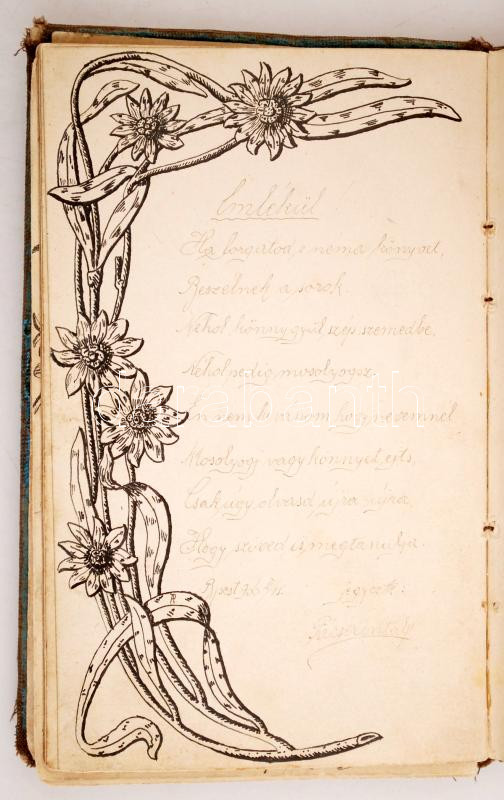 Emlékül
Ha forgatod e néma könyvet,
Beszélnek a sorok.
Néhol könny gyűl szép szemedbe,
Néhol pedig mosolyogsz.
Én nem kivánom hogy nevemnél
Mosolyogj vagy könnyet ejts,
Csak úgy olvasd újra újra,
Hogy szíved is megtanulja.
Bpest
jegyezte: